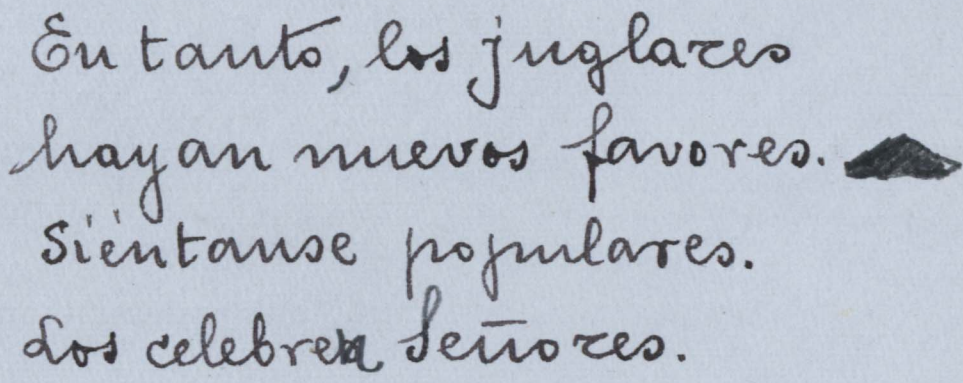 En tanto, los juglares
hayan nuevos favores.
Siéntanse populares.
Los celebren Señores.